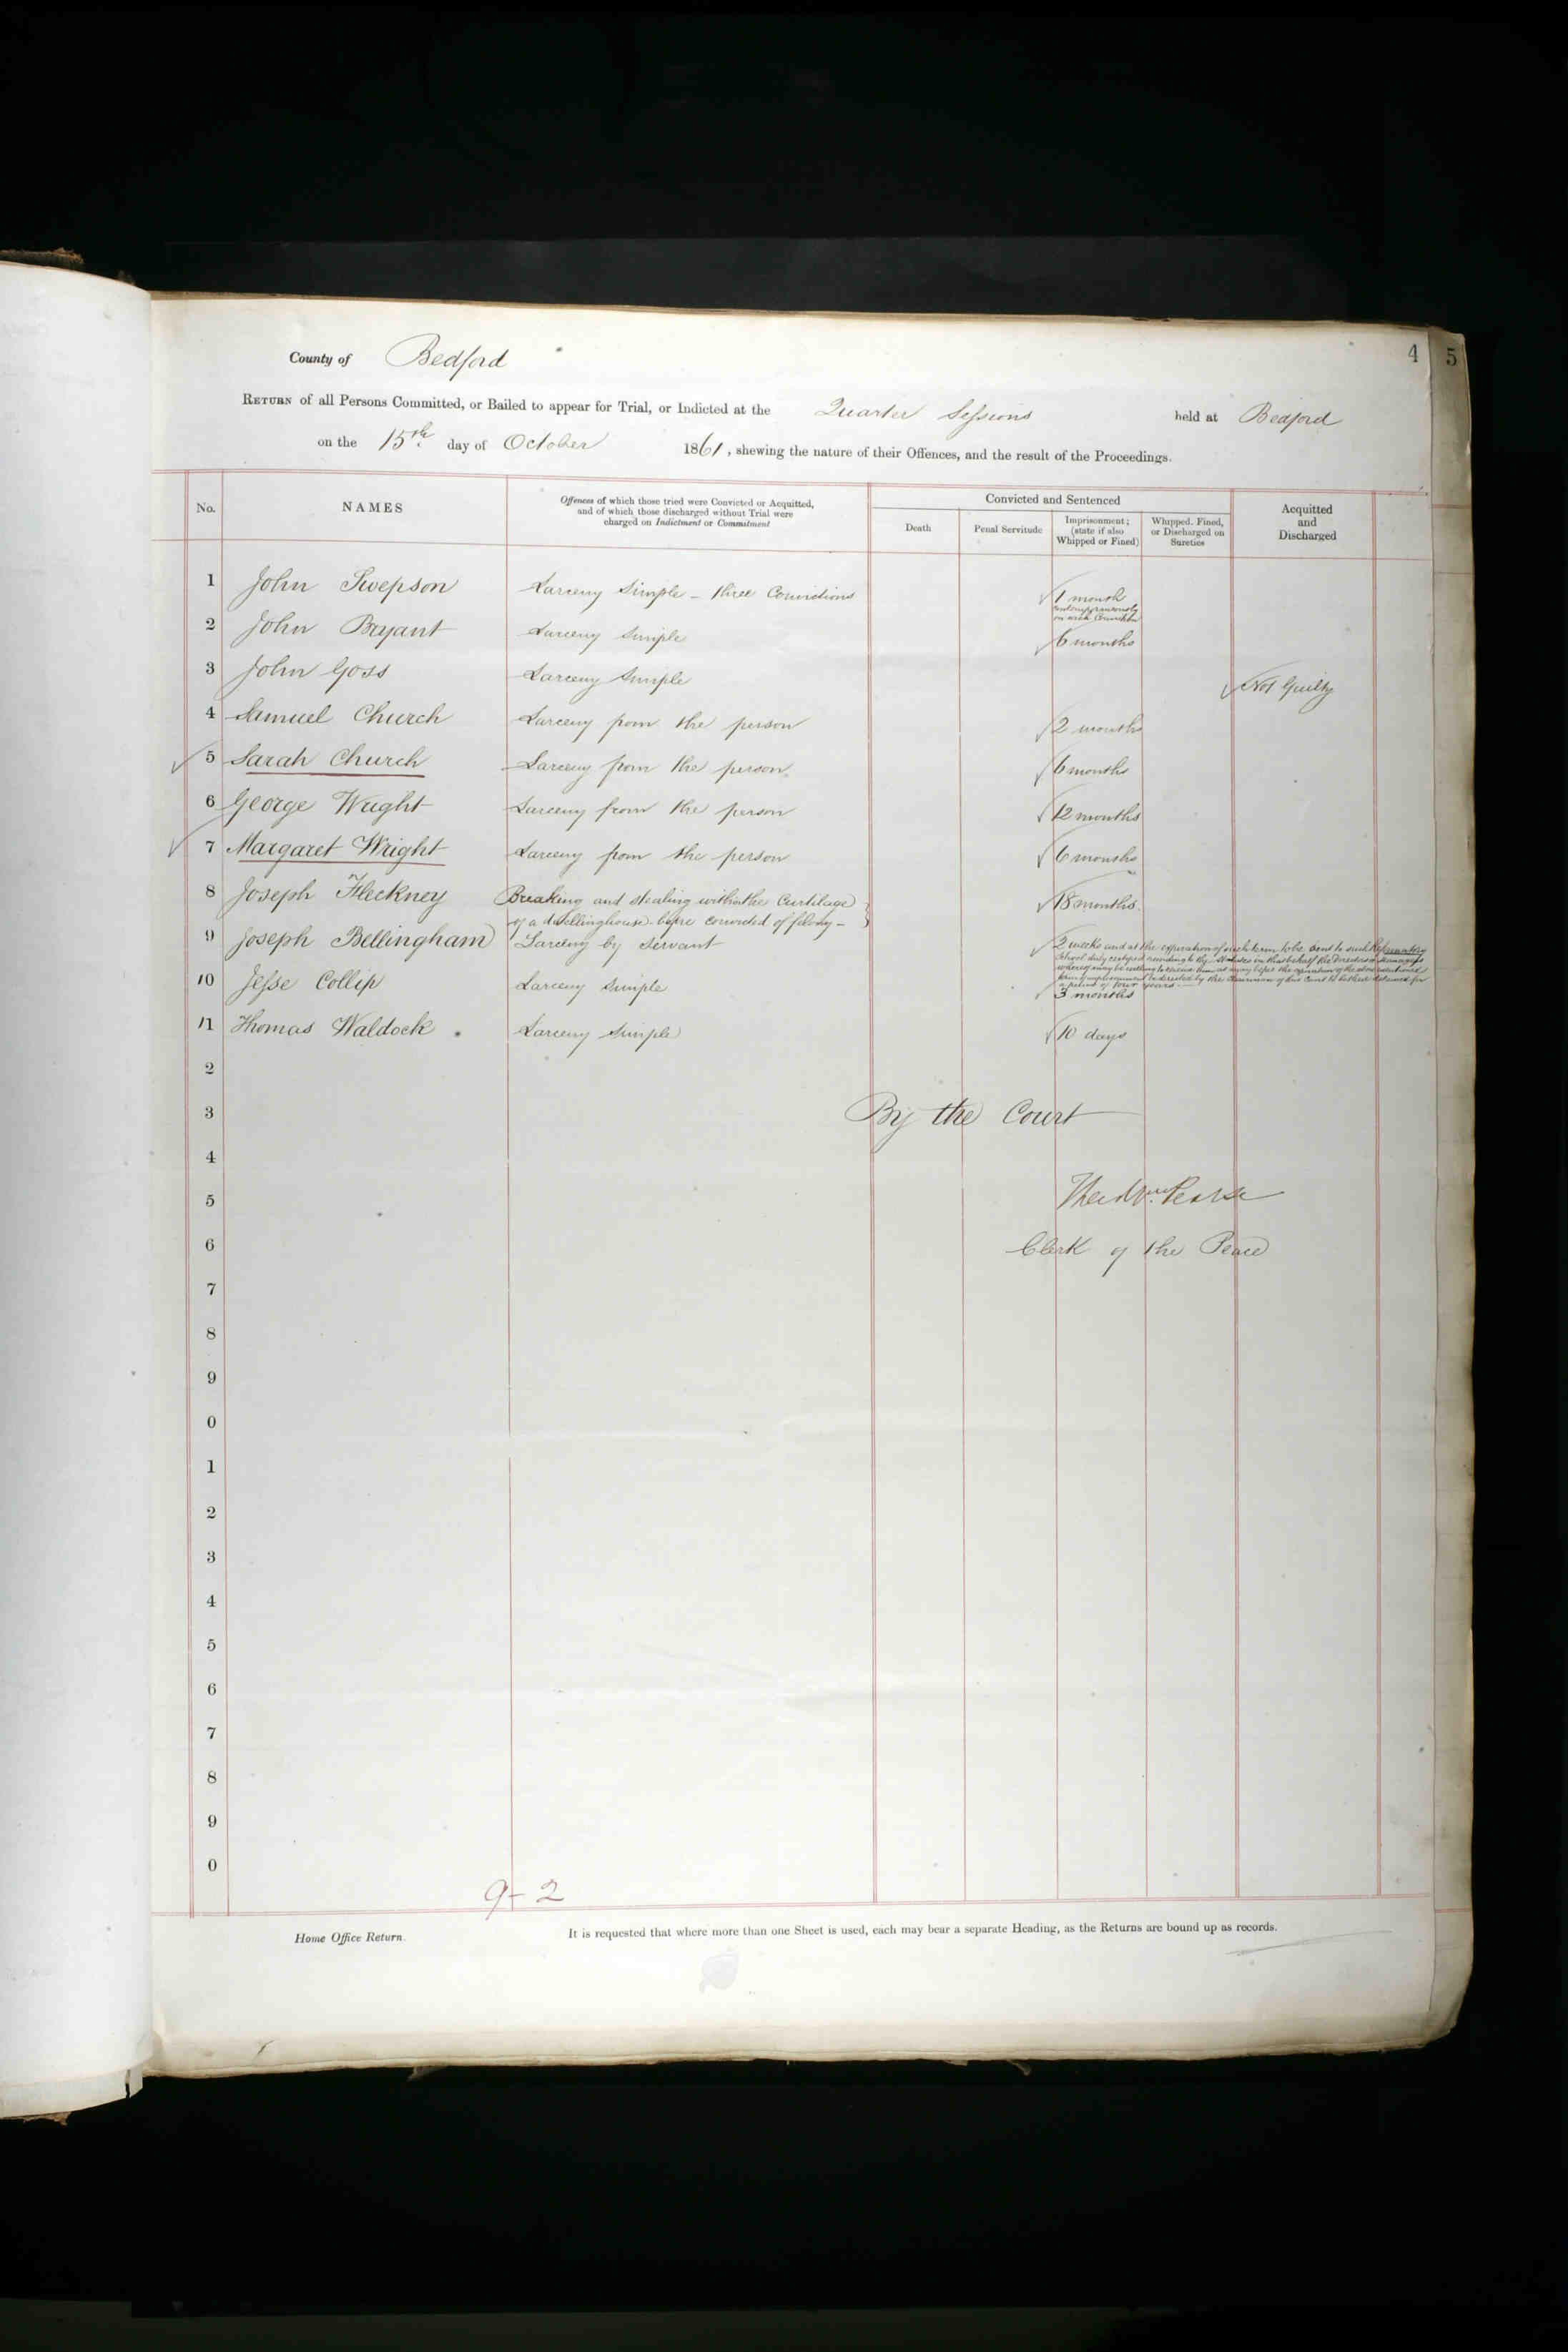 4 5
County of Bedford
RETURN of all Persons Committed, or Bailed to appear for Trial, or Indicted at the Quarter Sessions held at Bedford
on the 15th day of October 1861, shewing the nature of their Offences, and the result of the Proceedings.
No. NAMES Offences of which those tried were Convicted or Acquitted, and of which those discharged without Trial were charged on Indictment or Commitment Convicted and Sentenced Acquitted and Discharged
Death Penal Servitude Imprisonment; (state if also Whipped or Fined) Whipped, Fined, or Discharged on Sureties
1 John Swepson Larceny Simple - three Convictions 1 month
contemporaneously
on each Conviction
2 John Bryant Larceny Simple 6 months
3 John Goss Larceny Simple Not Guilty
4 Samuel Church Larceny from the person 2 months
5 Sarah Church Larceny from the person 6 months
6 George Wright Larceny from the person 12 months
7 Margaret Wright Larceny from the person 6 months
8 Joseph Fleckney Breaking and stealing within the Curtilage 18 months
of a dwellinghouse before convicted of felony -
9 Joseph Bellingham Larceny by Servant 2 weeks and at the expiration of such term to be sent to such Reformatory
School duly certified according to the Statutes in that behalf the Directors or Managers
whereof may be willing to receive him as may before the expiration of the above mentioned
term of imprisonment be directed by the Chairman of this Court to be there detained for
a period of four years
10 Jesse Collip Larceny Simple 3 months
11 Thomas Waldock Larceny Simple 10 days
2
3 By the Court
4
5 Pearse
6 Clerk of the Peace
7
8
9
0
1
2
3
4
5
6
7
8
9
0
9 + 2
Home Office Return. It is requested that where more than one Sheet is used, each may bear a separate Heading, as the Returns are bound up as records.